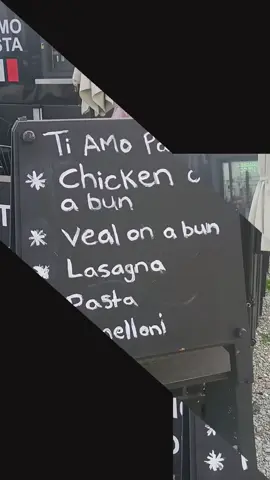 MO
STA
Ti AMo Pa
* Chicken
a bun
* Veal on a bun
* Lasagna
Pasta
nelloni